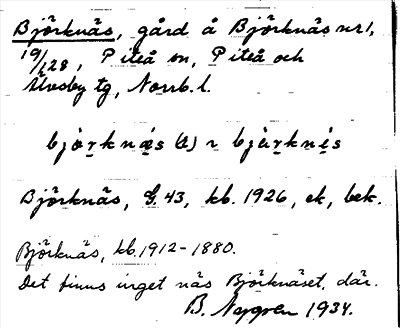 Björknäs, gård å Björknäs nr 1,
19/128, Piteå sn, Piteå och
Älvsby tg, Norrb. l.
bjò̤rknä̤s (ɛ) ~ bjùrknis
Björknäs, G. 43, kb. 1926, ek, bek.
Björknäs, kb. 1912-1880.
Det finns inget näs Björknäset, där.
B. Nygren 1934.